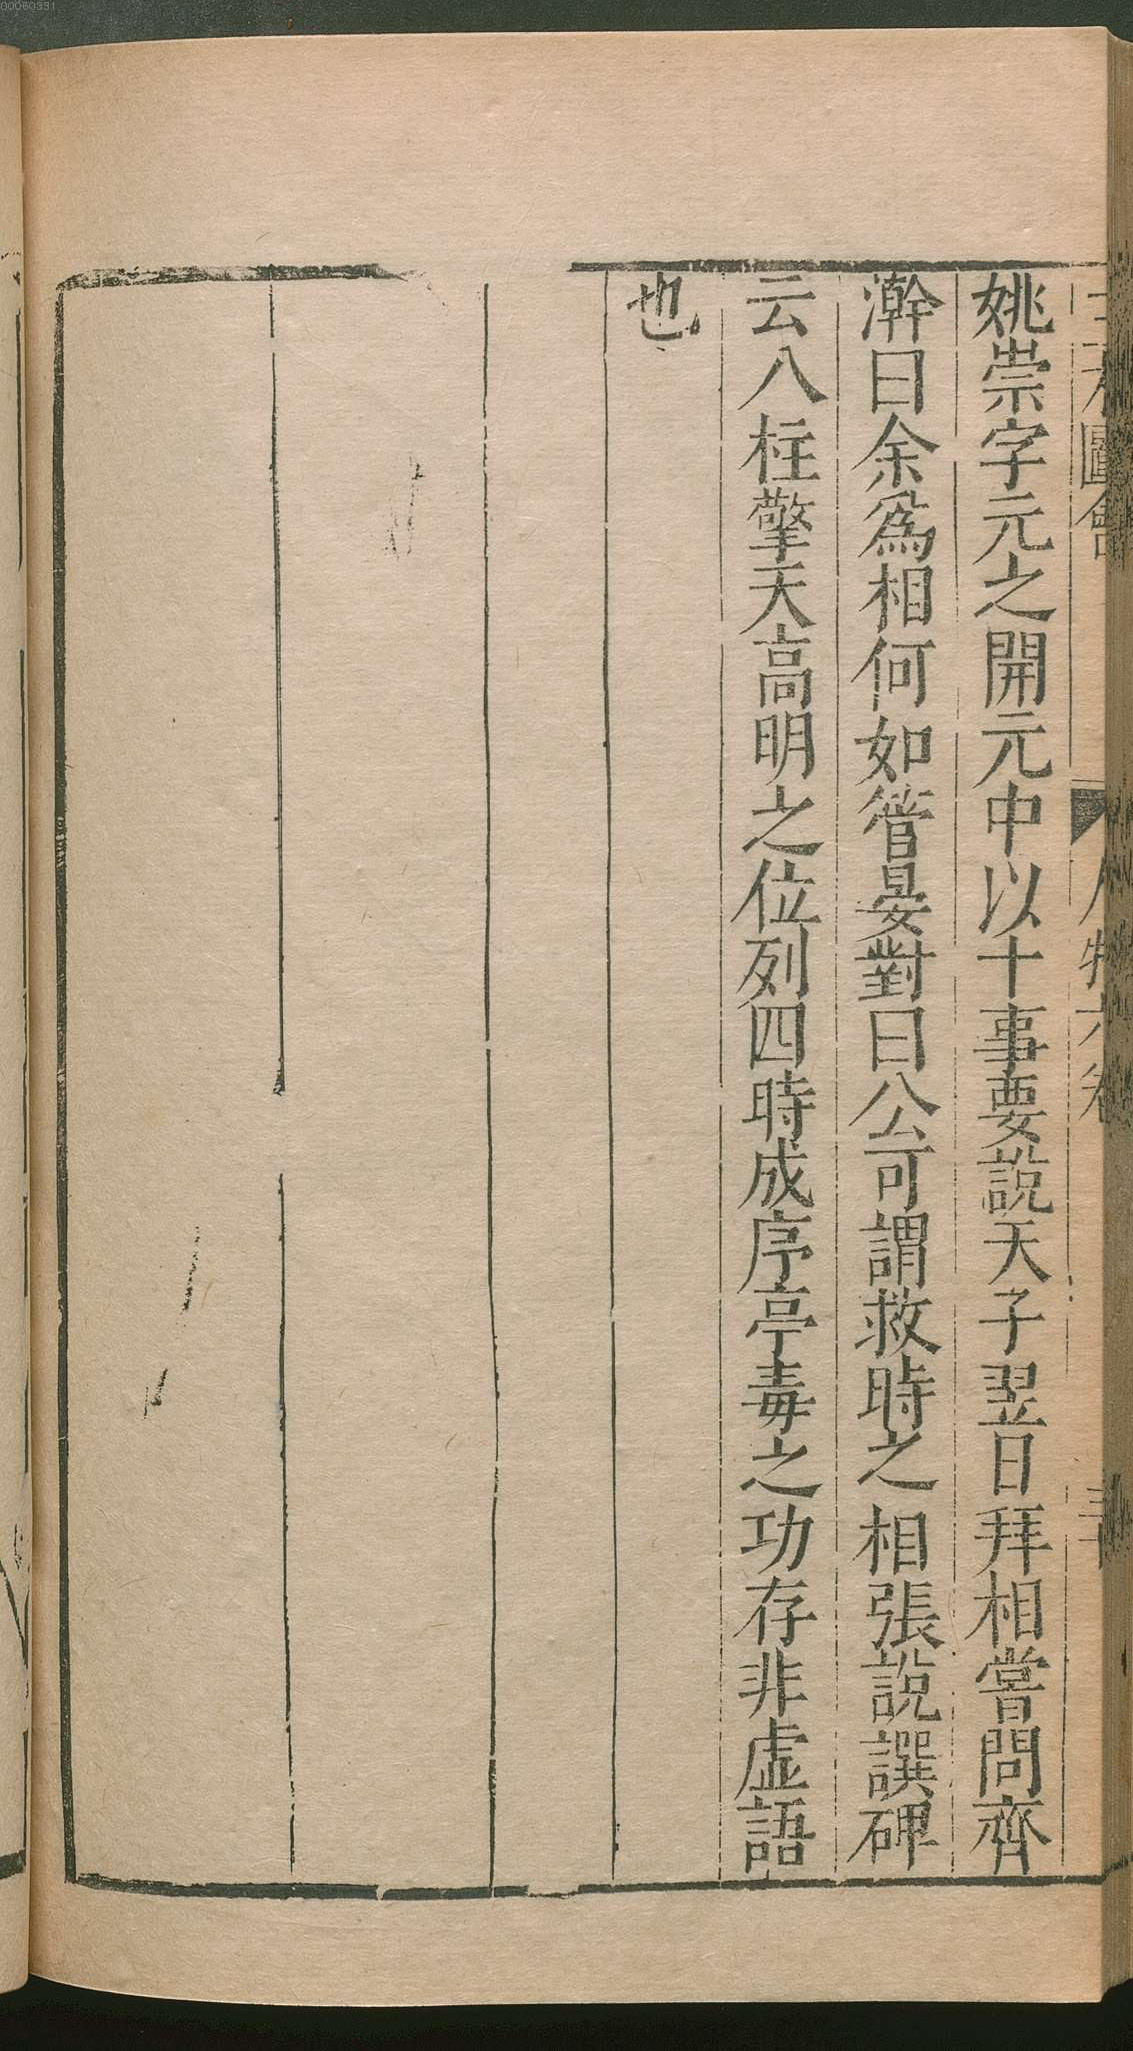 00060331
圖會 人物六卷
姚崇字元之開元中以十事要說天子翌日拜相嘗問齊
澣曰余爲相何如管晏對曰公可謂救時之相張說譔碑
云八柱擎天高明之位列四時成序亭毒之功存非虛語
也